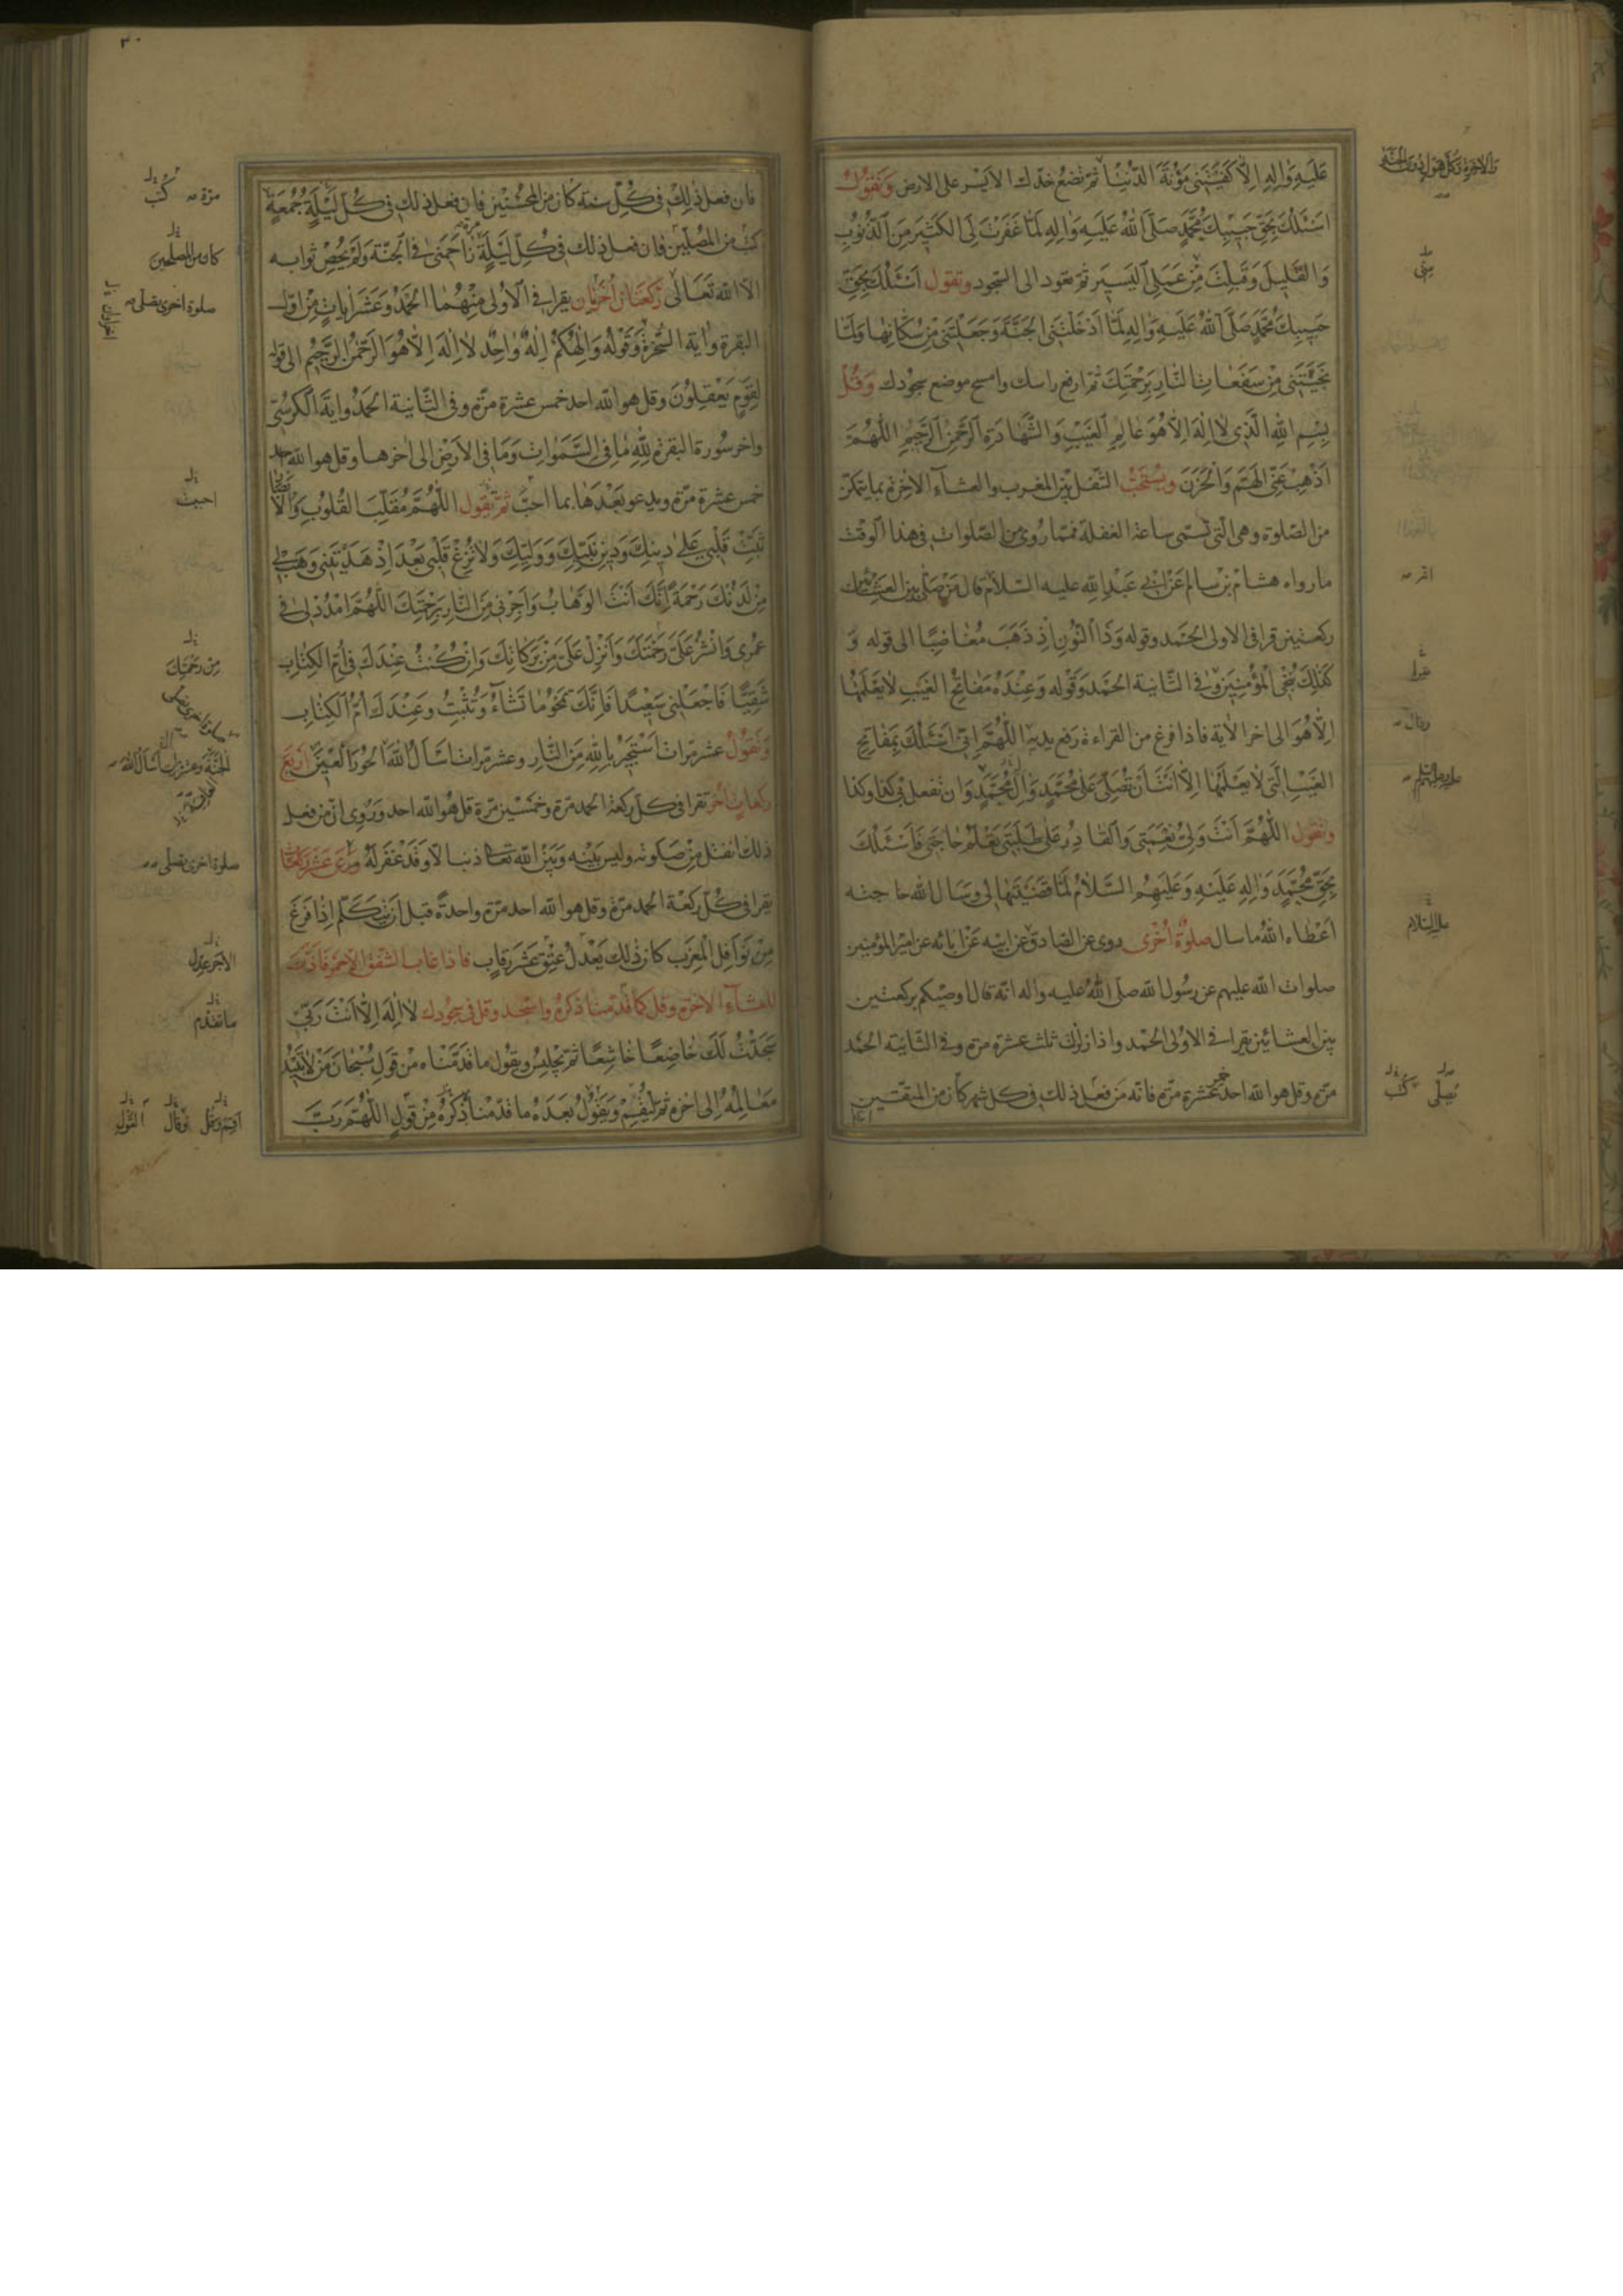 عَلَيْهِ وَالِهِ اِلاّ كَفَيْتَنِى مَؤُنَةَ الدُّنْيا ثمّ تضع خدّك الايسر على الارض وَتَقولُ
اَسْئَلُكَ بِحَقِّ حَبِيبِكَ مُحَمَّدٍ صَلَّى اللهُ عَلَيهِ وَالِهِ لَمّا غَفَرْتَ لِىَ الكَثيرَ مِنَ الذُّنُوبِ
وَالقَليلَ وَقَبِلْتَ مِنْ عَمَلِىَ اليَسيرَ ثمّ تعود الى السّجود وتقول اَسْئَلُكَ بِحَقِّ
حَبِيبِكَ مُحَمَّدٍ صَلَّى اللهُ عَلَيهِ وَالِهِ لَمّا اَدْخَلْتَنِى الجَنَّةَ وَجَعَلْتَنِى مِنْ سُكّانِها وَلَمّا
نَجَّيْتَنِى مِنْ سَفَعاتِ النّارِ بِرَحْمَتِكَ ثمّ ارفع راسك وامسح موضع سجودك وَقُلْ
بِسْمِ اللهِ الَّذِى لا اِلهَ اِلاّ هُوَ عالِمِ الغَيْبِ وَالشَّهادَةِ الرَّحْمنِ الرَّحيمِ اللّهُمَّ
اَذْهِبْ عَنّى الهَمَّ وَالحُزنَ ويُستَحَبُّ التّنفل بين المغرب والعشاء الاخرة بما يتمكن
من الصّلوة وهى الّتى تسمّى ساعة الغفلة فممّا روى من الصّلوات فى هذا الوقت
مارواه هشام بن سالم عَنْ ابى عَبْدِ اللهِ عليه السّلام قال مَنْ صَلّى بين العشائين
ركعتين قرا فى الاولى الحَمد وقوله وَذَا النّونِ اِذْ ذَهَبَ مُغاضِبًا الى قوله وَ
كَذلِكَ نُنْجِى الْمُؤْمِنِينَ وفى الثّانية الحَمد وَقوله وَعِنْدَهُ مَفاتِحُ الغَيبِ لا يَعْلَمُها
اِلاّ هُوَ الى اخر الاية فاذا فرغ من القراءة رفع يديه اللّهُمَّ اِنّى اَسْئَلُكَ بِمَفاتِحِ
الغَيْبِ الَّتى لا يَعْلَمُها اِلاّ اَنْتَ اَنْ تُصَلِّىَ عَلى مُحَمَّدٍ وَالِ مُحَمَّدٍ وَان تفعل بى كذا وكذا
وتقول اللّهُمَّ اَنْتَ وَلِىُّ نِعْمَتِى وَالقادِرُ عَلى طَلِبَتِى تَعْلَمُ حاجَتِى فَاَسْئَلُكَ
بِحَقِّ مُحَمَّدٍ وَالِهِ عَلَيْهِ وَعَلَيْهِمُ السَّلامُ لَمّا قَضَيْتَها لى وسَاَل الله حاجته
اَعْطاه اللهُ ما سال صلوةٌ اُخْرى روى عن الصّادق عن ابيه عَنْ ابائه عن امير المؤمنين
صلوات الله عليهم عن رسُول الله صلّى اللهُ عليه واله انّه قال اوصيكم بركعتين
بين العشائين يقرا فى الاولى الحَمد واذا زلزلت ثلث عشرة مرّة وفى الثّانية الحَمد
مرّة وقل هوا الله احد خمس عشرة مرّة فانّه مَن فعل ذلك فى كل شهر كان من المتّقين
والاخرة وكل هول دون الجنة
منّى
اقر
وقال
عليهم السّلم
عليه السلام
يُصَلّى كُتب
فان فعل ذلكَ فى كُلّ سنة كان من المحسنين فان فعل ذلك فى كلّ ليْلَةِ جُمعَة
كتب من المصلّين فان فعل ذلك فى كلّ ليلَةٍ زاحمَنى فى الجنّة وَلَم يحصِ ثوابه
الاّ الله تَعالى رَكعتان اُخريان يقرا فى الاولى مِنْهُما الحَمدُ وعَشر اياتٍ مِنْ اوّل
البقرة وايَة السّخرة وَقوله وَاِلهُكُم اِلهٌ واحِدٌ لا اِلهَ اِلاّ هُوَ الرَّحْمنُ الرَّحيمُ الى قوله
لِقَومٍ يَعْقِلونَ وقل هوا الله احد خمس عشرة مرّة وفى الثّانية الحَمدُ واية الكرسىّ
واخر سُورة البقرة لِلّهِ ما فِى السَّمواتِ وَما فِى الاَرْضِ الى اخرها وقل هوا الله احد
خمس عشرة مرّة ويدعو بَعْدَها بما احبّ ثمّ تقول اللّهُمَّ مُقَلِّبَ القُلُوبِ وَالاَبصار
ثَبِّتْ قَلْبِى عَلى دِينِكَ وَدِينِ نَبِيِّكَ وَوَلِيِّكَ وَلا تُزِغْ قَلْبِى بَعْدَ اِذْ هَدَيْتَنِى وَهَبْ لِى
مِنْ لَدُنْكَ رَحْمَةً اِنَّكَ اَنْتَ الوَهّابُ وَاَجِرْنِى مِنَ النّارِ بِرَحْمَتِكَ اللّهُمَّ امْدُدْ لى فى
عُمْرِى وَانْشُرْ عَلَىَّ رَحْمَتَكَ وَاَنْزِلْ عَلَىَّ مِنْ بَرَكاتِكَ وَاِنْ كُنْتُ عِنْدَكَ فى اُمِّ الكِتابِ
شَقِيًّا فَاجْعَلْنى سَعِيدًا فَاِنَّكَ تَمْحُو ما تَشاءُ وَتُثْبِتُ وَعِنْدَكَ اُمُّ الكِتابِ
وَتَقُولُ عشر مرّات اَسْتَجِيرُ بِاللهِ مِنَ النّارِ وعشر مرّات اَسْاَلُ اللهَ الحُورَ العِينَ اَربَع
ركعاتٍ اُخَر تقرا فى كلّ ركعة الحمد مرّة وخمسين مرّة قل هوا الله احد وَرُوى انّ من فعل
ذلك انفتل مِنْ صلوته وليس بَيْنه وبين الله تعالى ذنب الاّ وقد غفر لَهُ
يقرا فى كُلّ ركعَة الحمد مرّة وقل هوا الله احد مرّة واحدةً قبل ان يتكلّم اِذا فَرَغَ
مِنْ نَوافِل المغرب كان ذلك يَعْدلُ عِتقَ عَشْر رقاب فاذا غاب الشّفق الاحمر فاذّن
للعشاءِ الاخرة وقل كما قدّمنا ذكره واسجد وقل فى سجودك لا اِلهَ اِلاّ اَنْتَ رَبّى
سَجَدْتُ لَكَ خاضِعًا خاشِعًا ثمّ يجلس ويقول ما قدّمناه من قولِ سُبْحانَ مَنْ لا تَبِيدُ
مَعالِمُهُ اِلى اخره ثمّ ليُقِم وَيقولُ بعده ما قدّمنا ذكرهُ مِنْ قولِ اللّهُمَّ رَبَّ
٣٠
مرّة كُتب
كان من المصلحين
صلوة اخرى يصلّى
احببت
مِن رحمتك
الجنة وعشر مرّات اسال الله
صلوة اخرى يصلّى
الاجر عدل
ما تقدّم